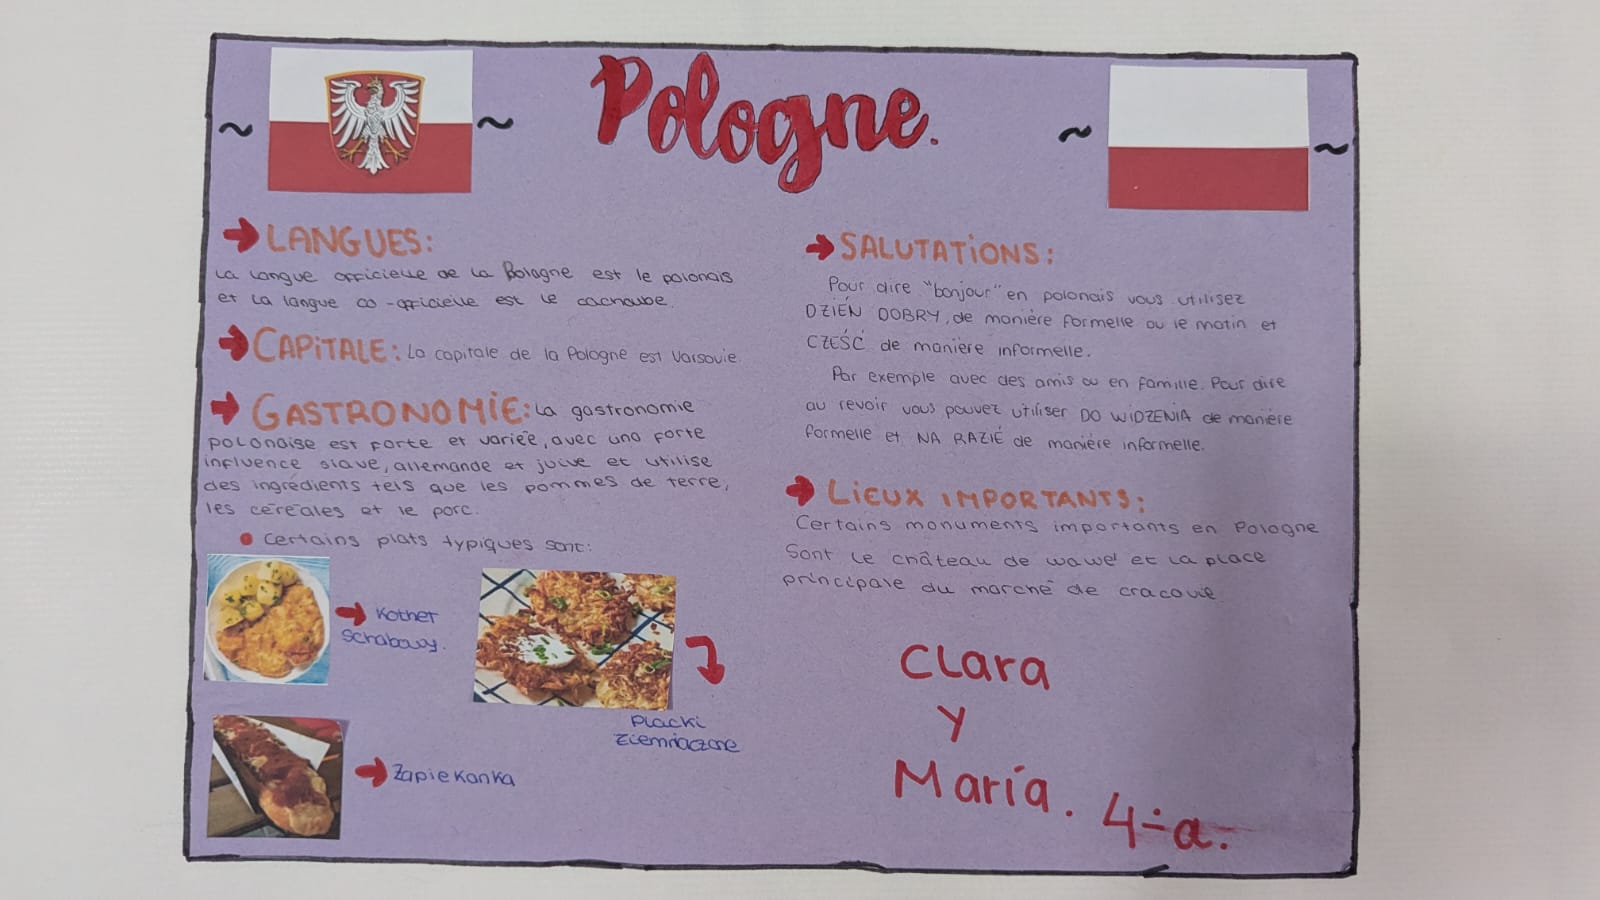 Pologne.
→ LANGUES:
La langue officielle de la Pologne est le polonais
et la langue co-officielle est le cachoube.
→ CAPITALE: La capitale de la Pologne est Varsovie.
→ GASTRONOMIE: La gastronomie
polonaise est forte et variée, avec una forte
influence slave, allemande et juive et utilise
des ingrédients tels que les pommes de terre,
les céréales et le porc.
• Certains plats typiques sont:
→ Kothet
Schabowy.
Placki
Ziemniaczane
→ Zapiekanka
→ SALUTATIONS:
Pour dire "bonjour" en polonais vous utilisez
DZIEŃ DOBRY, de manière formelle ou le matin et
CZEŚĆ de manière informelle.
Par exemple avec des amis ou en famille. Pour dire
au revoir vous pouvez utiliser DO WIDZENIA de manière
formelle et NA RAZIÉ de manière informelle.
→ LIEUX IMPORTANTS:
Certains monuments importants en Pologne
sont le château de wawel et la place
principale du marché de cracovie
Clara
y
María. 4÷a.